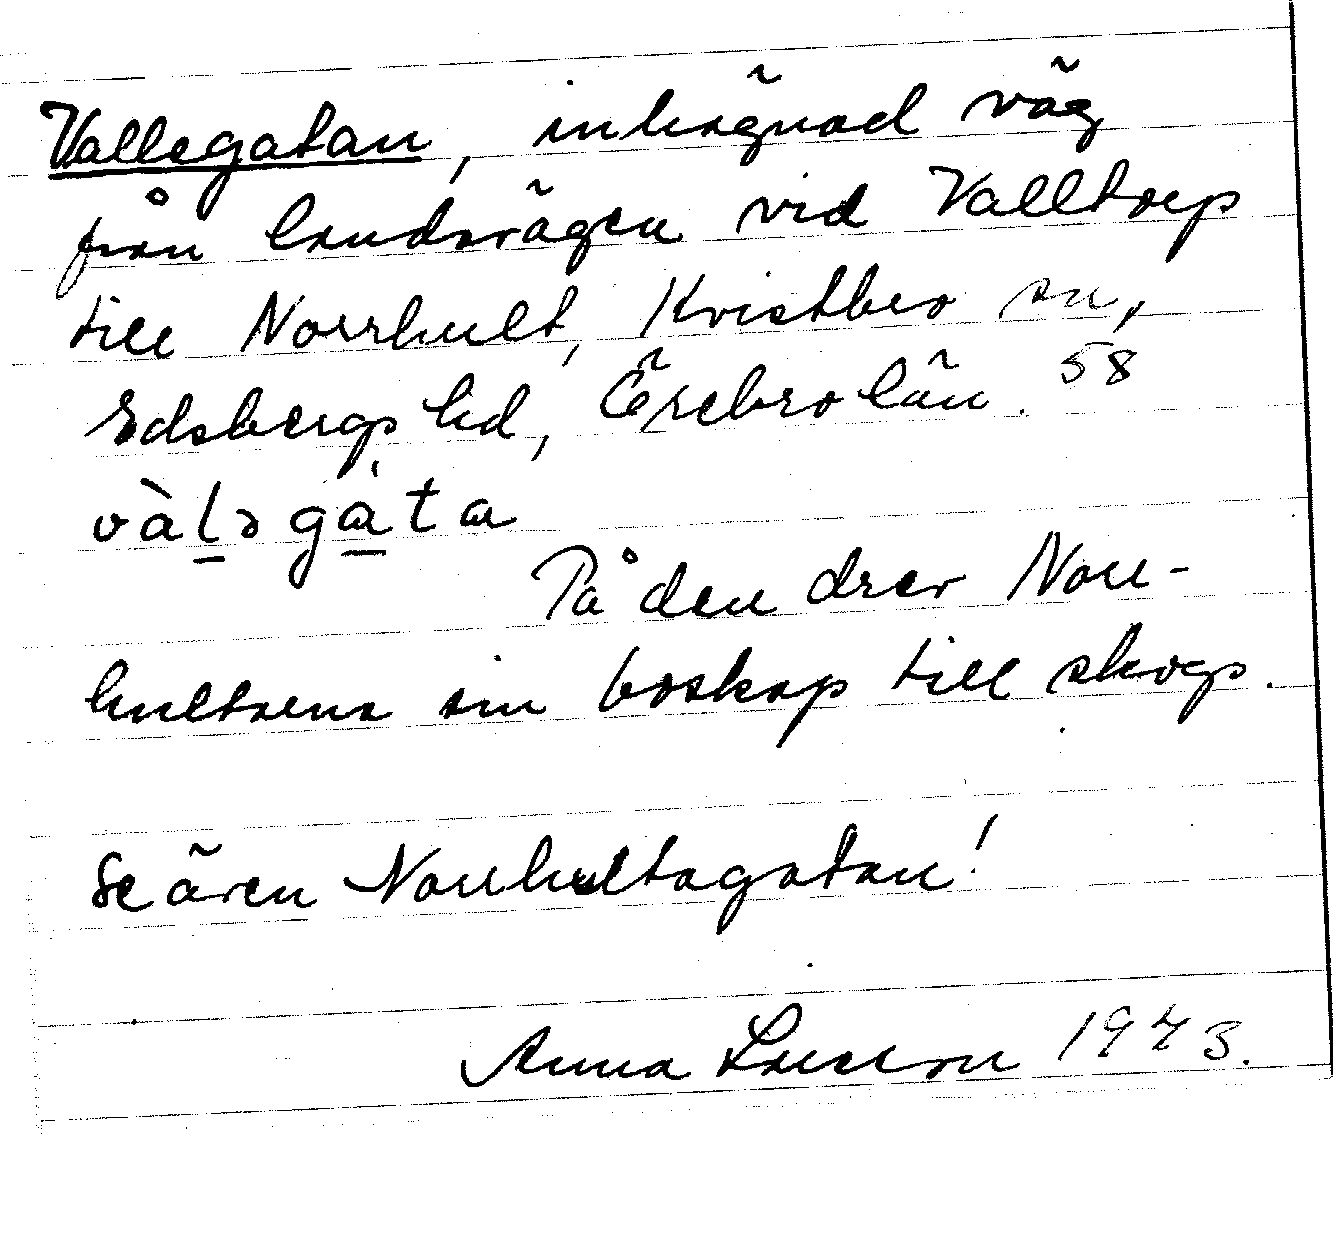 Vallegatan, inhägnad väg
från landsvägen vid Valltorp
till Norrhult, Kvistbro sn,
Edsbergs hd, Örebro län. 58
vàlǝgàta
På den drev Norr-
hultarna sin boskap till skogs.
Se även Norrhultagatan!
Anna Larsson 1973.